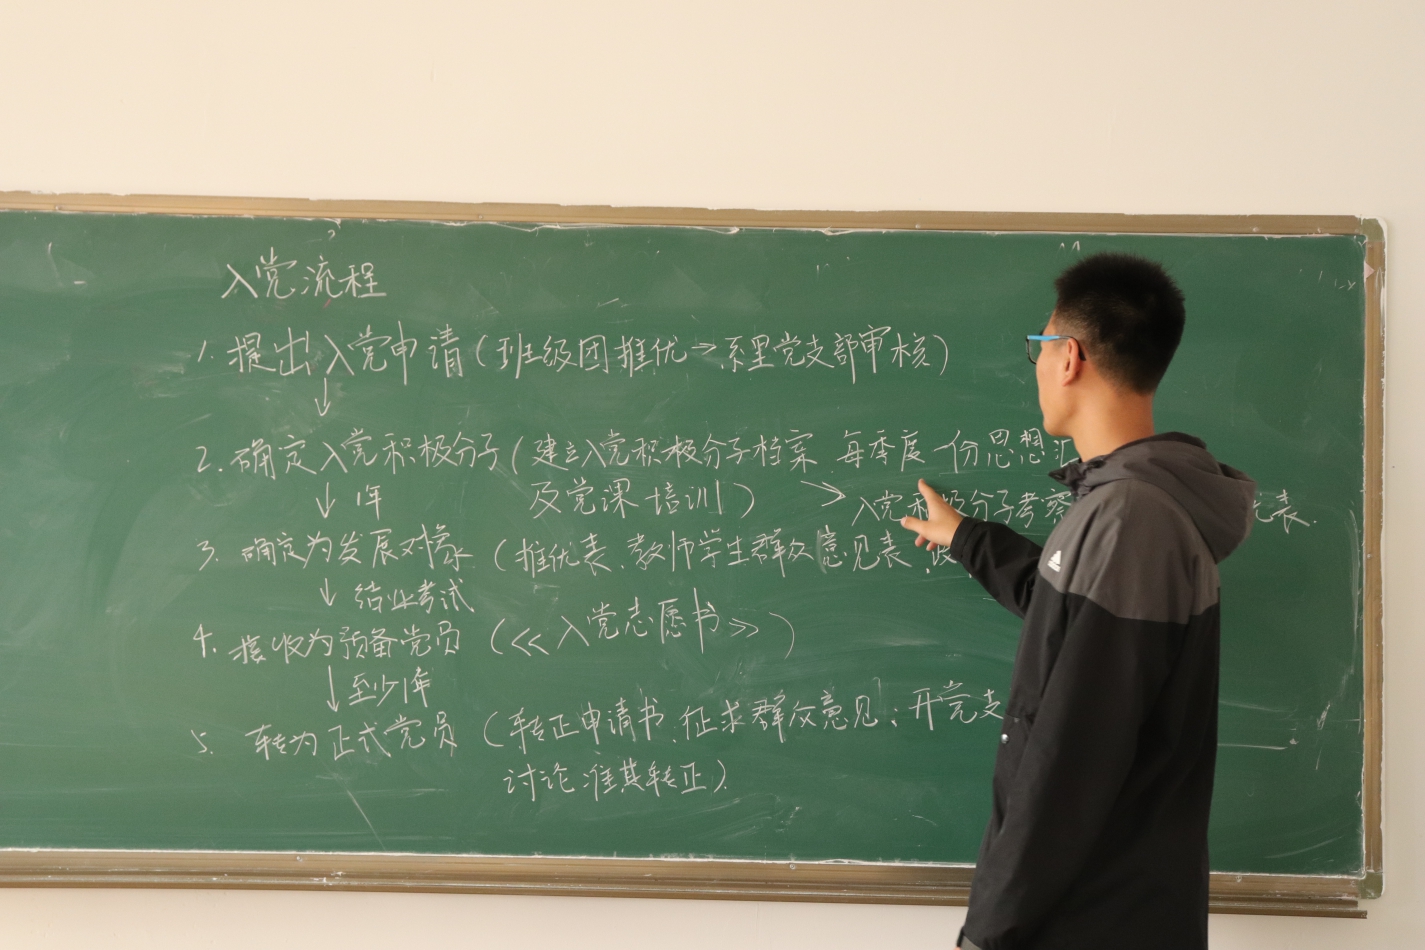 入党流程
1. 提出入党申请(班级团推优→系里党支部审核)
↓
2. 确定入党积极分子(建立入党积极分子档案.每季度一份思想汇
↓ 1年 及党课培训) > 入党积极分子考察 表.
3. 确定为发展对象(推优表.教师学生群众意见表.
↓ 结业考试
4. 接收为预备党员(<<入党志愿书>>)
↓ 至少1年
5. 转为正式党员(转正申请书.征求群众意见;开党支
讨论准其转正).